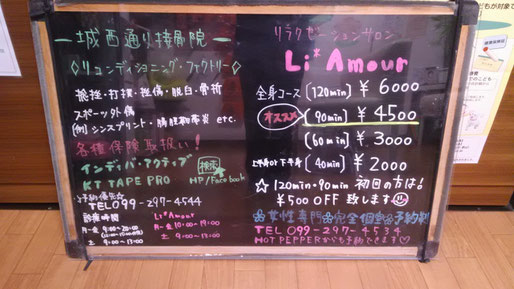 ー城西通り接骨院ー
◇リコンディショニング・ファクトリー◇
捻挫・打撲・挫傷・脱臼・骨折
スポーツ外傷
(例)シンスプリント・腸脛靭帯炎 etc.
各種保険取扱い!
インディバ・アクティブ
KT TAPE PRO
検索
HP/Facebook
☆予約優先☆
TEL 099-297-4544
診療時間
月-金 9:00~20:00
土 9:00~13:00
Li*Amour
月-金 10:00~19:00
土 9:00~13:00
リラクゼーションサロン
Li*Amour
全身コース (120min) ¥6000
オススメ (90min) ¥4500
(60min) ¥3000
上半身or下半身 (40min) ¥2000
☆120min・90min 初回の方は!
¥500 OFF 致します
女性専門 完全個室 予約制
TEL 099-297-4534
HOT PEPPERからも予約できます♡